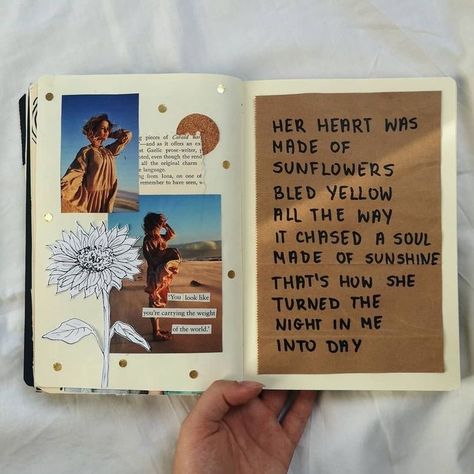 pieces of Gaelic Bas
—and as it offers an ex
et Gaelic prose-writer,
ooted, even though the rend
all the original charm
he language.
ing from Iona, on one of
remember to have seen,
"You look like
you're carrying the weight
of the world."
HER HEART WAS
MADE OF
SUNFLOWERS
BLED YELLOW
ALL THE WAY
IT CHASED A SOUL
MADE OF SUNSHINE
THAT'S HOW SHE
TURNED THE
NIGHT IN ME
INTO DAY